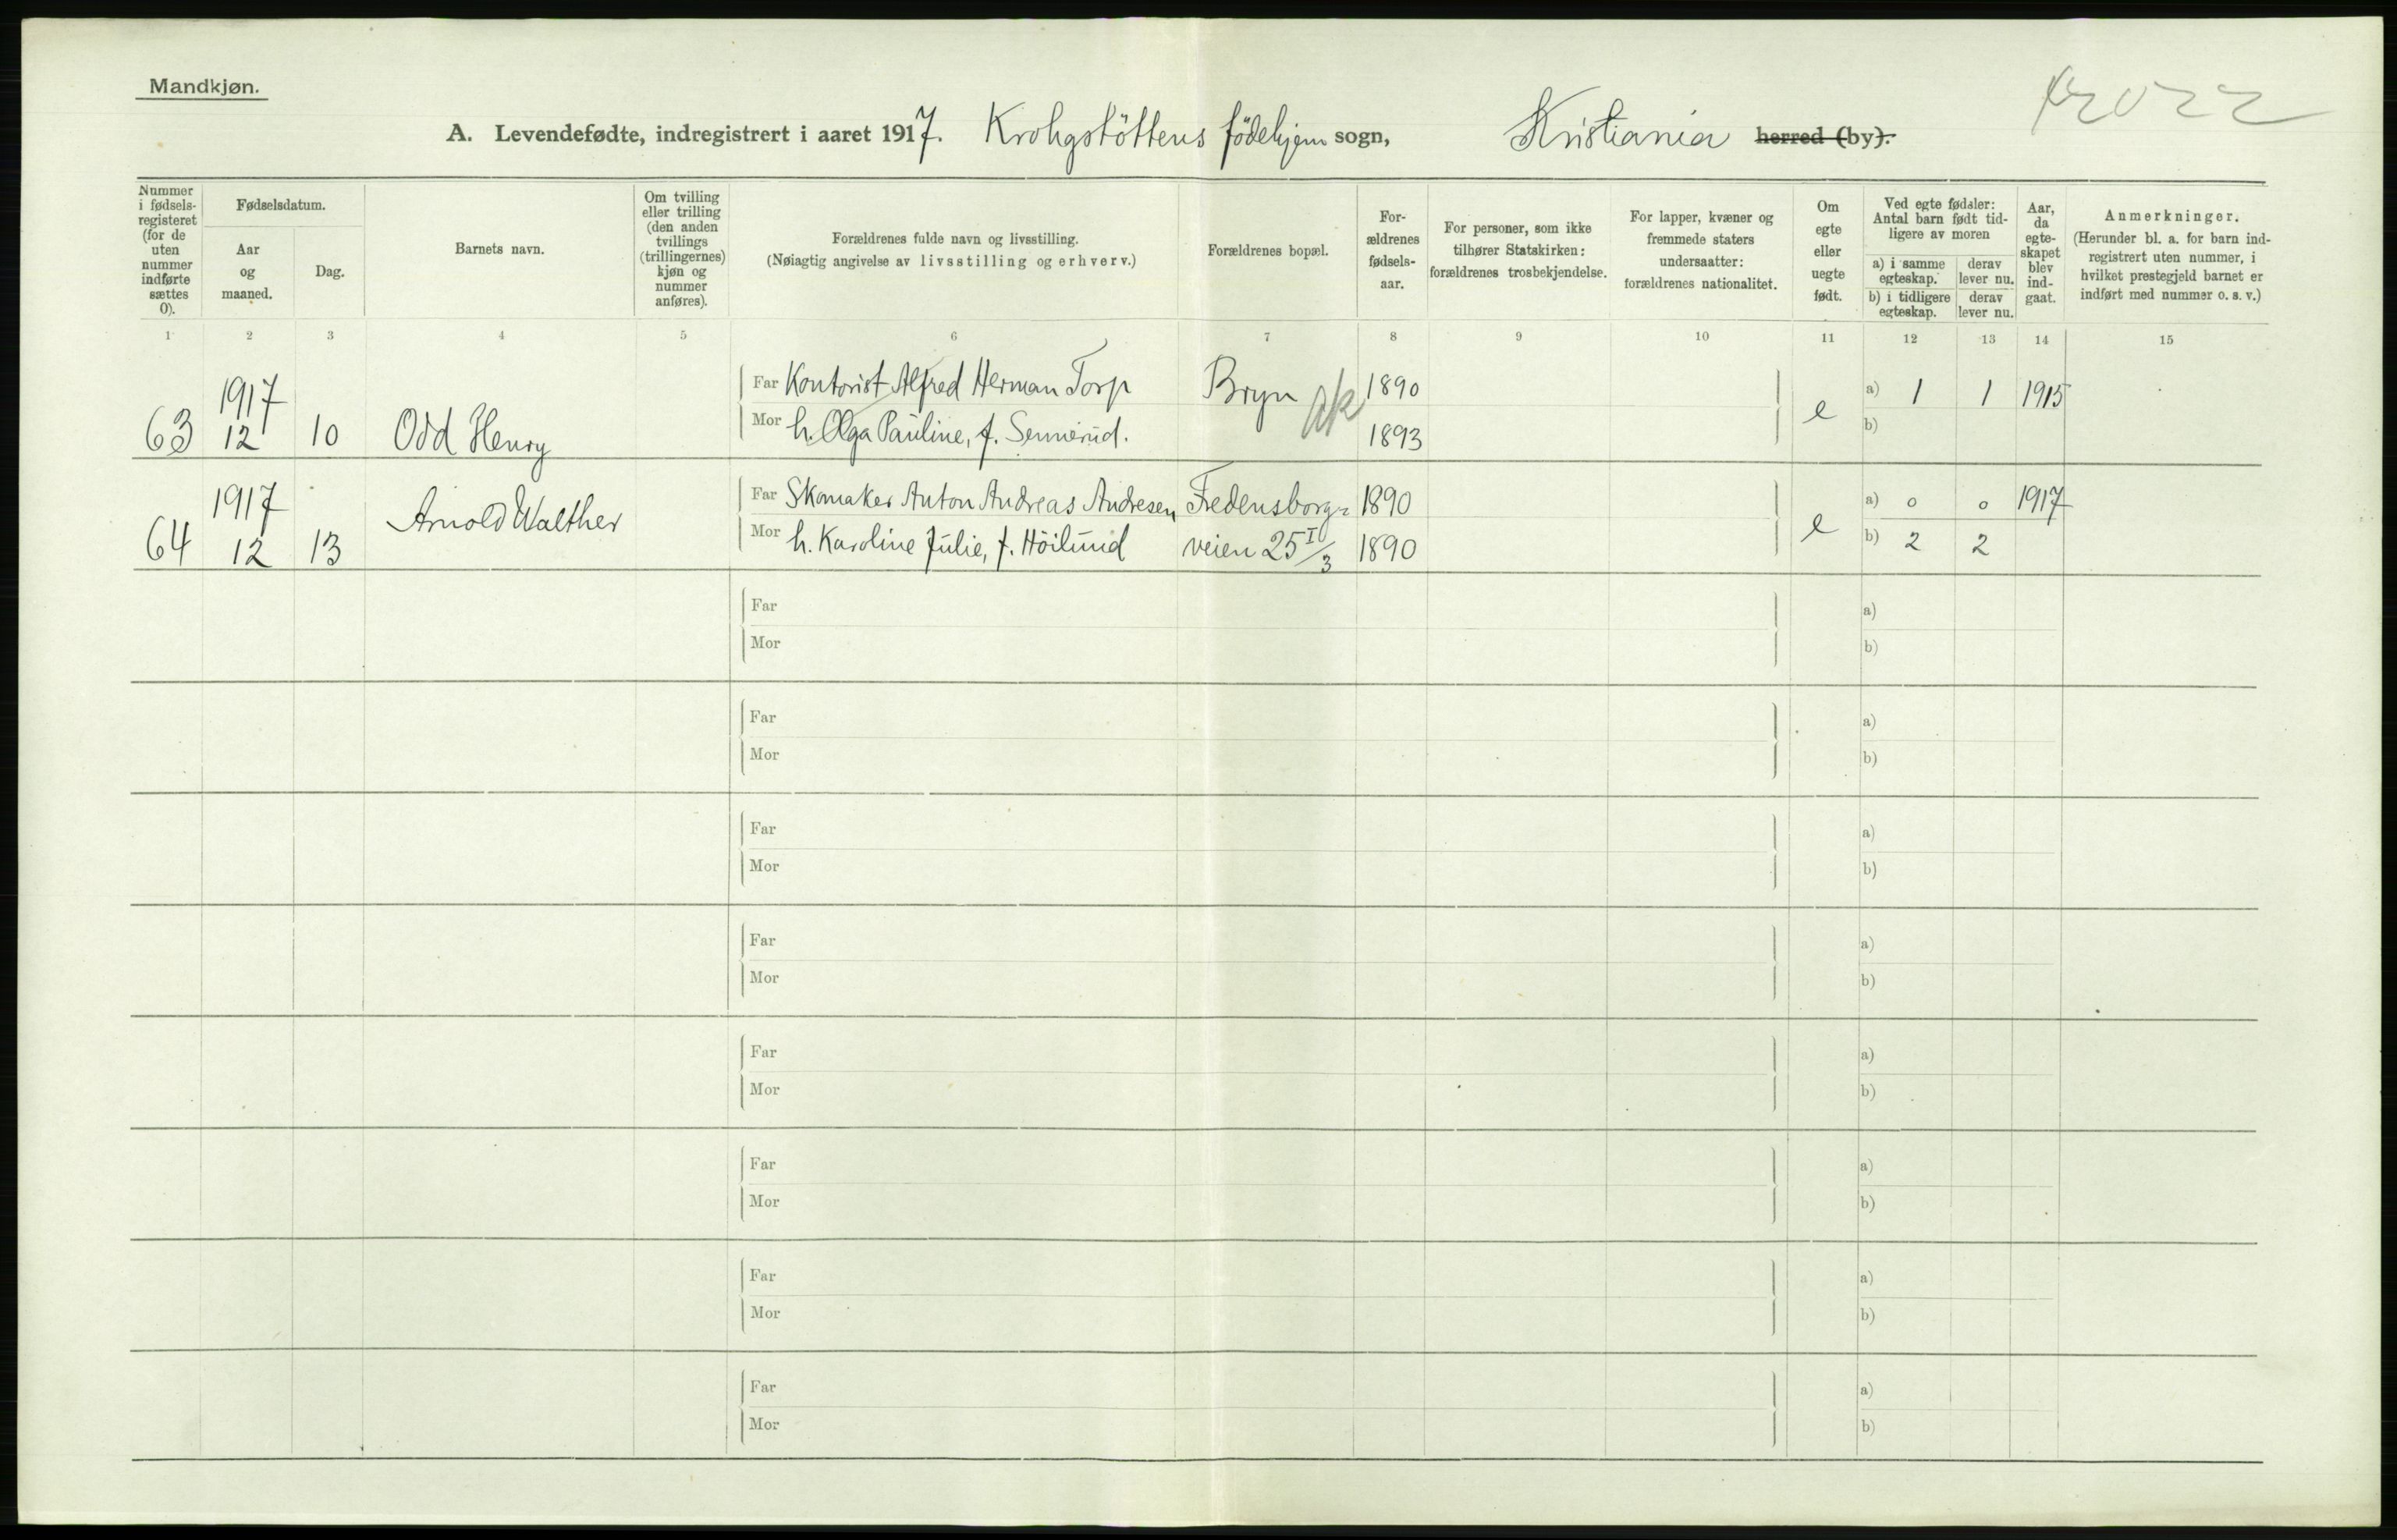 Mandkjøn.
A. Levendefødte, indregistrert i aaret 1917. Krohgstöttens födehjem sogn, Kristiania herred (by).
Nummer i fødsels-registeret (for de uten nummer indførte sættes 0).
Fødselsdatum.
Aar og maaned.
Dag.
Barnets navn.
Om tvilling eller trilling (den anden tvillings (trillingernes) kjøn og nummer anføres).
Forældrenes fulde navn og livsstilling.
(Nøiagtig angivelse av livsstilling og erhverv.)
Forældrenes bopæl.
For-ældrenes fødsels-aar.
For personer, som ikke tilhører Statskirken: forældrenes trosbekjendelse.
For lapper, kvæner og fremmede staters undersaatter: forældrenes nationalitet.
Om egte eller uegte født.
Ved egte fødsler: Antal barn født tid-ligere av moren
a) i samme egteskap. derav lever nu.
b) i tidligere egteskap. derav lever nu.
Aar, da egte-skapet blev ind-gaat.
Anmerkninger.
(Herunder bl. a. for barn ind-registrert uten nummer, i hvilket prestegjeld barnet er indført med nummer o. s. v.)
1 2 3 4 5 6 7 8 9 10 11 12 13 14 15
1917 Far Kontorist Alfred Herman Torp Bryn Ak 1890 e a) 1 1 1915
63 12 10 Odd Henry Mor h. Olga Pauline, f. Sennerud. 1893 b)
1917 Arnold Walther Far Skomaker Anton Andreas Andresen Fredensborg- 1890 e a) 0 0 1917
64 12 13 Mor h. Karoline Julie, f. Höilund veien 25 I/3 1890 b) 2 2
Far a)
Mor b)
Far a)
Mor b)
Far a)
Mor b)
Far a)
Mor b)
Far a)
Mor b)
Far a)
Mor b)
Far a)
Mor b)
Far a)
Mor b)